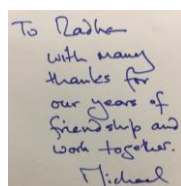 To Radha
with many
thanks for
our years of
friendship and
work together.
Michael